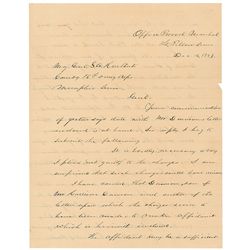 Office Provost Marshal
Dec 2, 1863
Maj Genl S A Hurlbut
Comdg 16th Army Corps
Memphis Tenn
Genl.
Your communication
of yesterdays date with Mr Dawsons letter
enclosed is at hand. In reply I beg to
submit the following
It is hardly necessary to say
I plead not guilty to the charge. I am
surprised that such charges should have arisen
I have
Mr Harrison Dawson and
letter upon which the charges seem to
have been made to make Affidavit
which is herewith enclosed.
The Affidavit may be sufficient